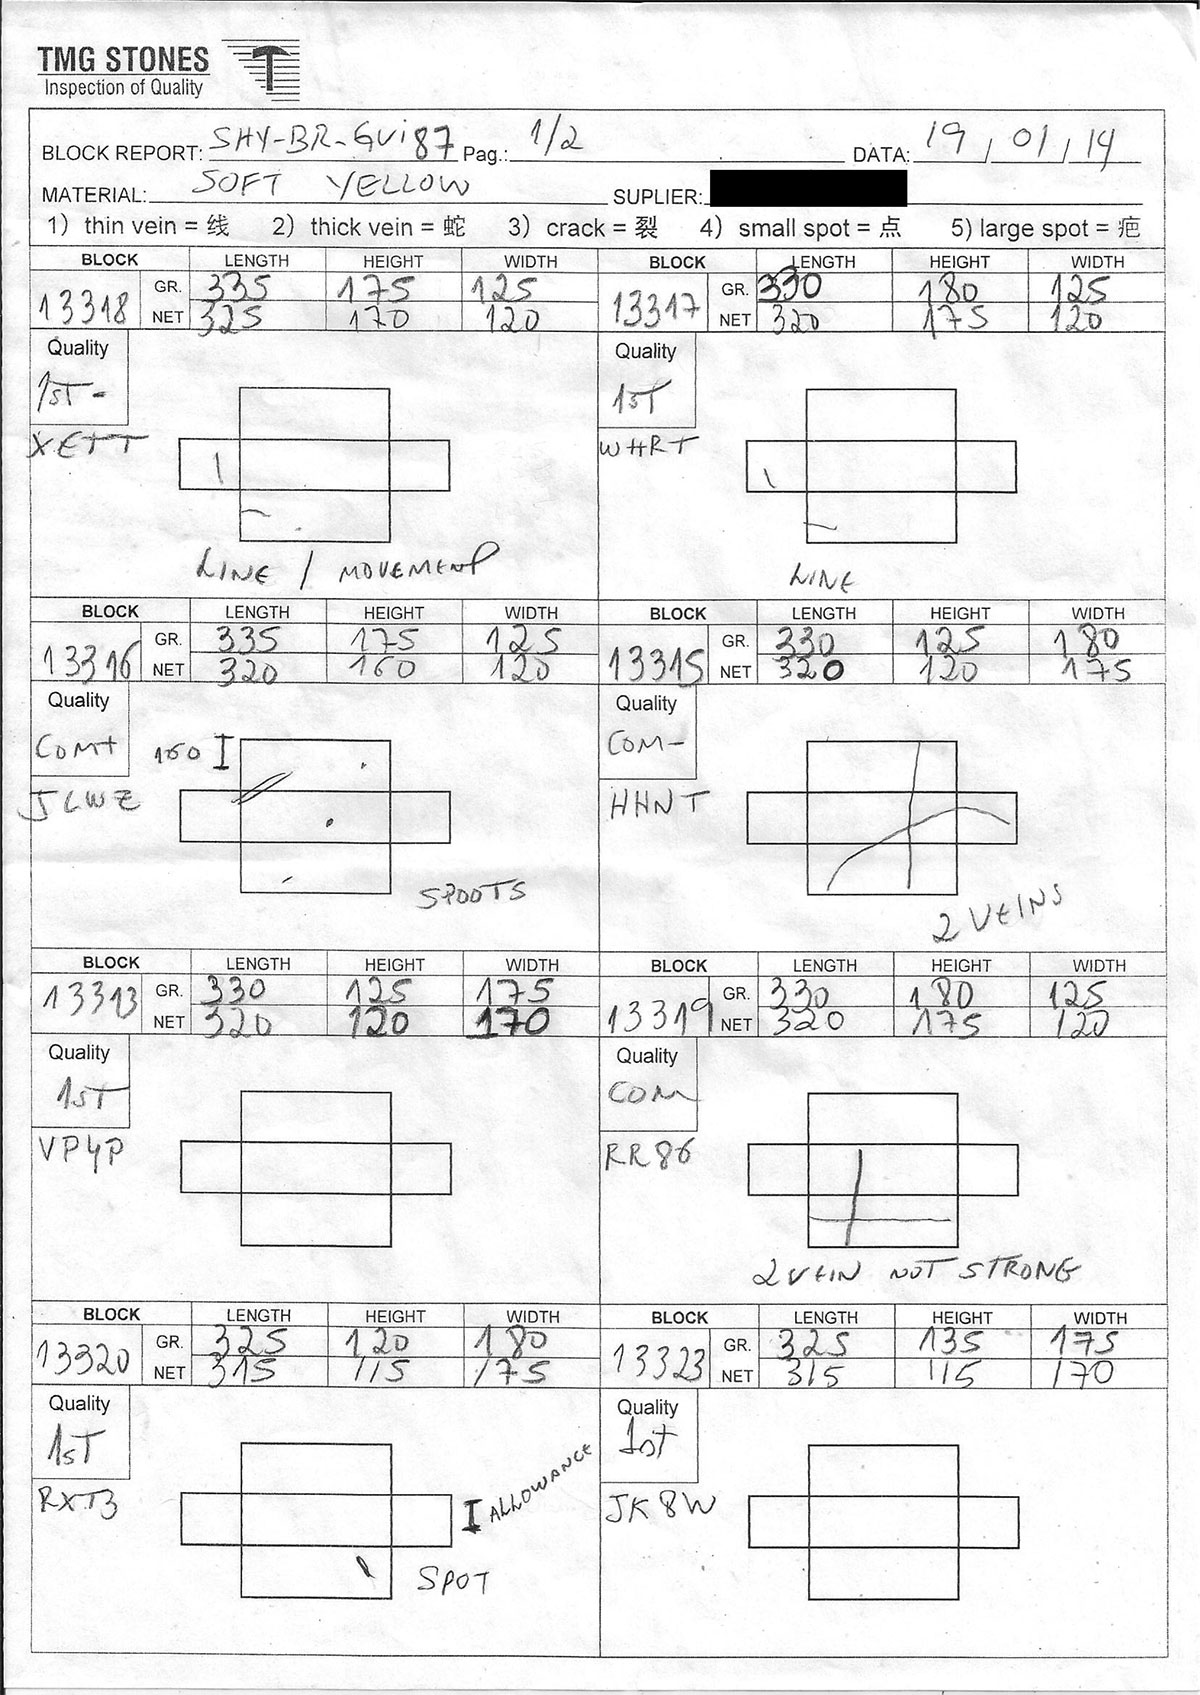 TMG STONES
Inspection of Quality
BLOCK REPORT: SHY-BR-GVi87 Pag.: 1/2 DATA: 19 / 01 / 14
MATERIAL: SOFT YELLOW SUPLIER:
1) thin vein = 线 2) thick vein = 蛇 3) crack = 裂 4) small spot = 点 5) large spot = 疤
BLOCK LENGTH HEIGHT WIDTH BLOCK LENGTH HEIGHT WIDTH
13318 GR. 335 175 125 13317 GR. 330 180 125
NET 325 170 120 NET 320 175 120
Quality Quality
1ST - 1ST
XETT WHRT
LINE / MOVEMENT LINE
BLOCK LENGTH HEIGHT WIDTH BLOCK LENGTH HEIGHT WIDTH
13316 GR. 335 175 125 13315 GR. 330 125 180
NET 320 160 120 NET 320 120 175
Quality Quality
COM+ 160 COM-
JLWZ HHNT
SPOOTS 2 VEINS
BLOCK LENGTH HEIGHT WIDTH BLOCK LENGTH HEIGHT WIDTH
13313 GR. 330 125 175 13319 GR. 330 180 125
NET 320 120 170 NET 320 175 120
Quality Quality
1ST COM
VP4P RR86
2 VEIN NOT STRONG
BLOCK LENGTH HEIGHT WIDTH BLOCK LENGTH HEIGHT WIDTH
13320 GR. 325 120 180 13323 GR. 325 135 175
NET 315 115 175 NET 315 115 170
Quality Quality
1ST 1st
RXT3 ALLOWANCE JK8W
SPOT